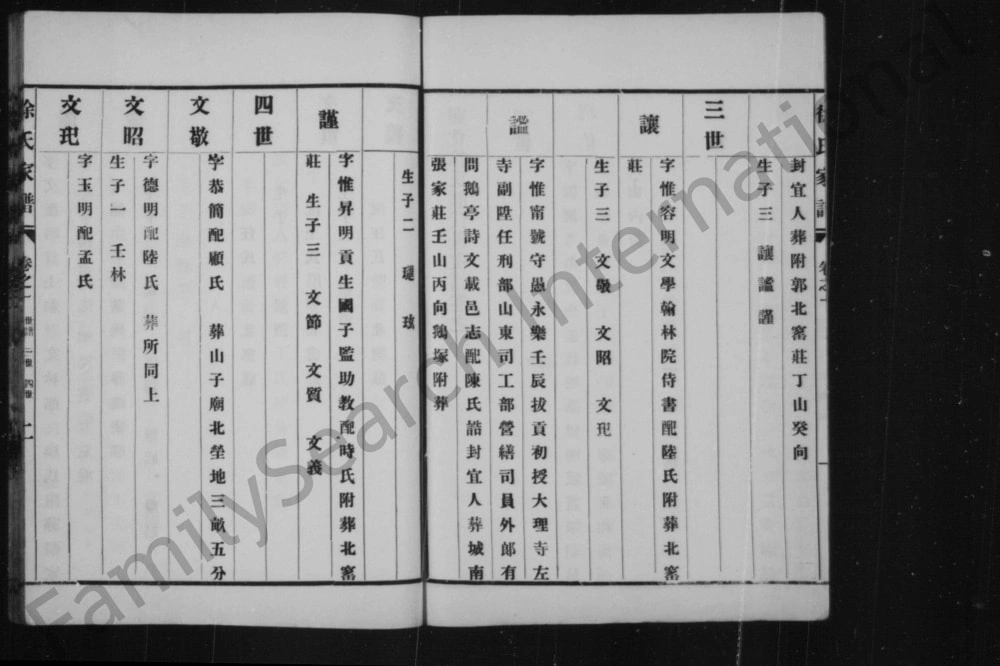 封宜人葬附郭北窰莊丁山癸向
生子三 讓 謐 謹
三世
讓
字惟容明文學翰林院侍書配陸氏附葬北窰
莊
生子三 文敬 文昭 文玘
謐
字惟甯號守愚永樂壬辰拔貢初授大理寺左
寺副陞任刑部山東司工部營繕司員外郎有
問鵝亭詩文載邑志配陳氏誥封宜人葬城南
張家莊壬山丙向鵝塚附葬
生子二
謹
字惟昇明貢生國子監助教配時氏附葬北窰
莊 生子三 文節 文質 文義
四世
文敬
字恭簡配顧氏 葬山子廟北塋地三畝五分
文昭
字德明配陸氏 葬所同上
生子一 壬林
文玘
字玉明配孟氏
徐氏家譜 卷之一
FamilySearch International